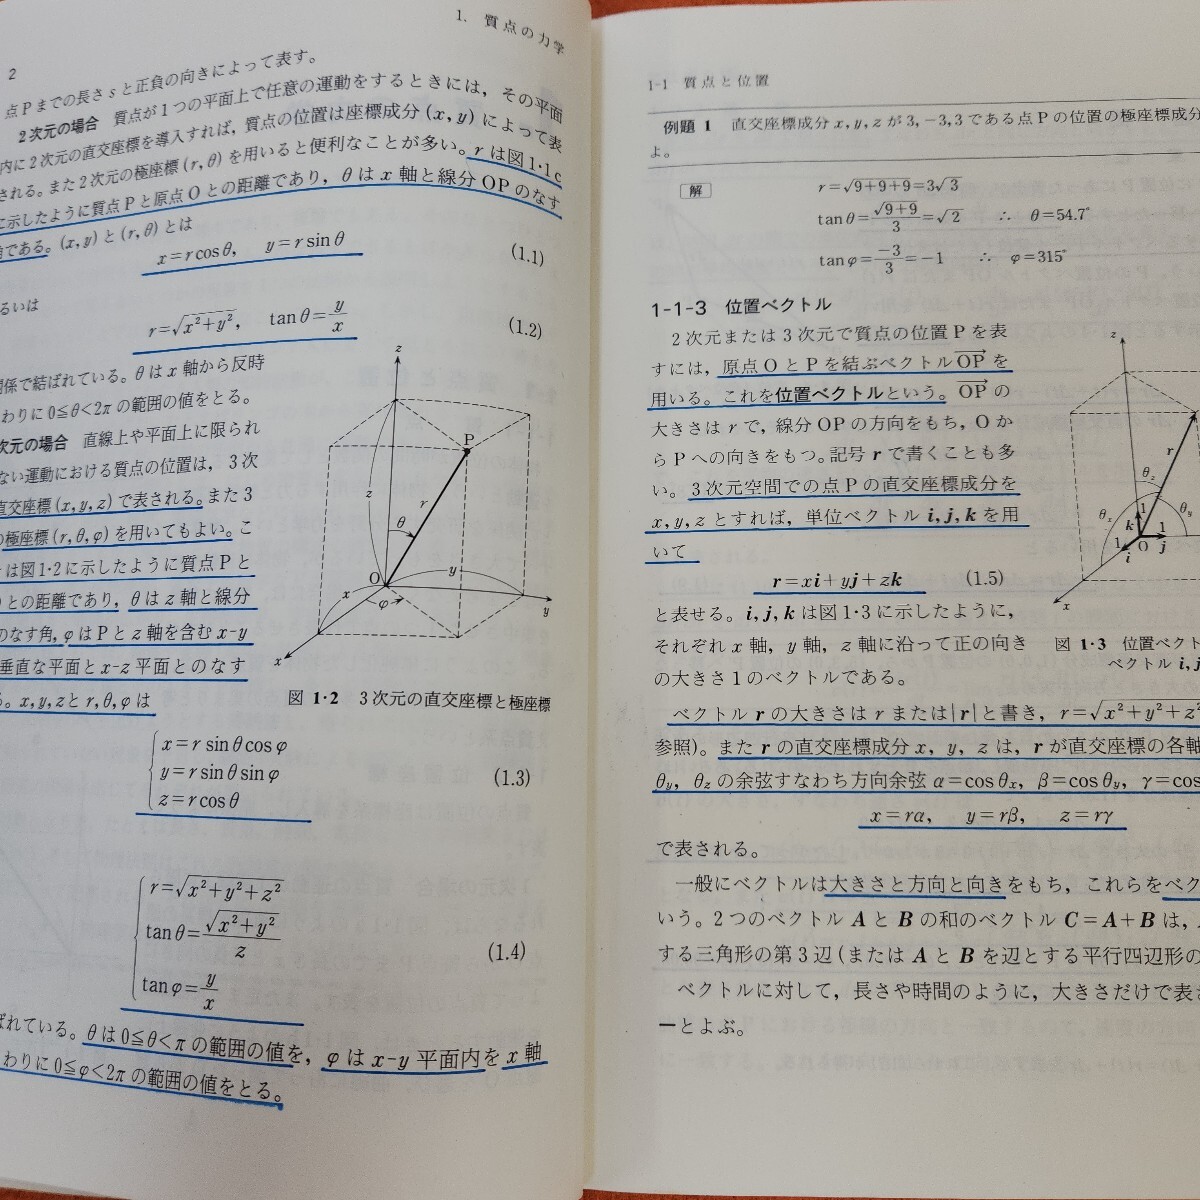 2
1. 質点の力学
点Pまでの長さsと正負の向きによって表す。
2次元の場合 質点が1つの平面上で任意の運動をするときには，その平面
内に2次元の直交座標を導入すれば，質点の位置は座標成分(x, y)によって表
される。また2次元の極座標(r, θ)を用いると便利なことが多い。rは図1·1c
に示したように質点Pと原点Oとの距離であり，θはx軸と線分OPのなす
である。(x, y)と(r, θ)とは
x=r cosθ, y=r sinθ (1.1)
るいは
r=√x²+y², tanθ=y/x (1.2)
関係で結ばれている。θはx軸から反時
わりに0≦θ<2πの範囲の値をとる。
次元の場合 直線上や平面上に限られ
ない運動における質点の位置は，3次
直交座標(x, y, z)で表される。また3
極座標(r, θ, φ)を用いてもよい。こ
は図1·2に示したように質点Pと
との距離であり，θはz軸と線分
のなす角，φはPとz軸を含むx-y
垂直な平面とx-z平面とのなす
。x, y, zとr, θ, φは
z
P
z
r
θ
O
y
x
φ
y
x
図 1·2 3次元の直交座標と極座標
x=r sinθ cosφ
y=r sinθ sinφ
z=r cosθ
(1.3)
r=√x²+y²+z²
tanθ=√x²+y²/z
tanφ=y/x
(1.4)
ばれている。θは0≦θ<πの範囲の値を，φはx-y平面内をx軸
わりに0≦φ<2πの範囲の値をとる。
1-1 質点と位置
例題 1 直交座標成分x, y, zが3, -3, 3である点Pの位置の極座標成分
よ。
解
r=√9+9+9=3√3
tanθ=√9+9/3=√2 ∴ θ=54.7°
tanφ=-3/3=-1 ∴ φ=315°
1-1-3 位置ベクトル
2次元または3次元で質点の位置Pを表
すには，原点OとPを結ぶベクトルOP→を
用いる。これを位置ベクトルという。OP→の
大きさはrで，線分OPの方向をもち，Oか
らPへの向きをもつ。記号rで書くことも多
い。3次元空間での点Pの直交座標成分を
x, y, zとすれば，単位ベクトルi, j, kを用
いて
r=xi+yj+zk (1.5)
と表せる。i, j, kは図1·3に示したように，
それぞれx軸，y軸，z軸に沿って正の向き
の大きさ1のベクトルである。
z
r
θz
θx
θy
1
k
1
1
O
j
i
x
図 1·3 位置ベクト
ベクトル i, j
ベクトルrの大きさはrまたは|r|と書き，r=√x²+y²+z²
参照)。またrの直交座標成分x, y, zは，rが直交座標の各軸
θy, θzの余弦すなわち方向余弦α=cosθx, β=cosθy, γ=cos
x=rα, y=rβ, z=rγ
で表される。
一般にベクトルは大きさと方向と向きをもち，これらをベク
いう。2つのベクトルAとBの和のベクトルC=A+Bは，
する三角形の第3辺(またはAとBを辺とする平行四辺形の
ベクトルに対して，長さや時間のように，大きさだけで表さ
ーとよぶ。